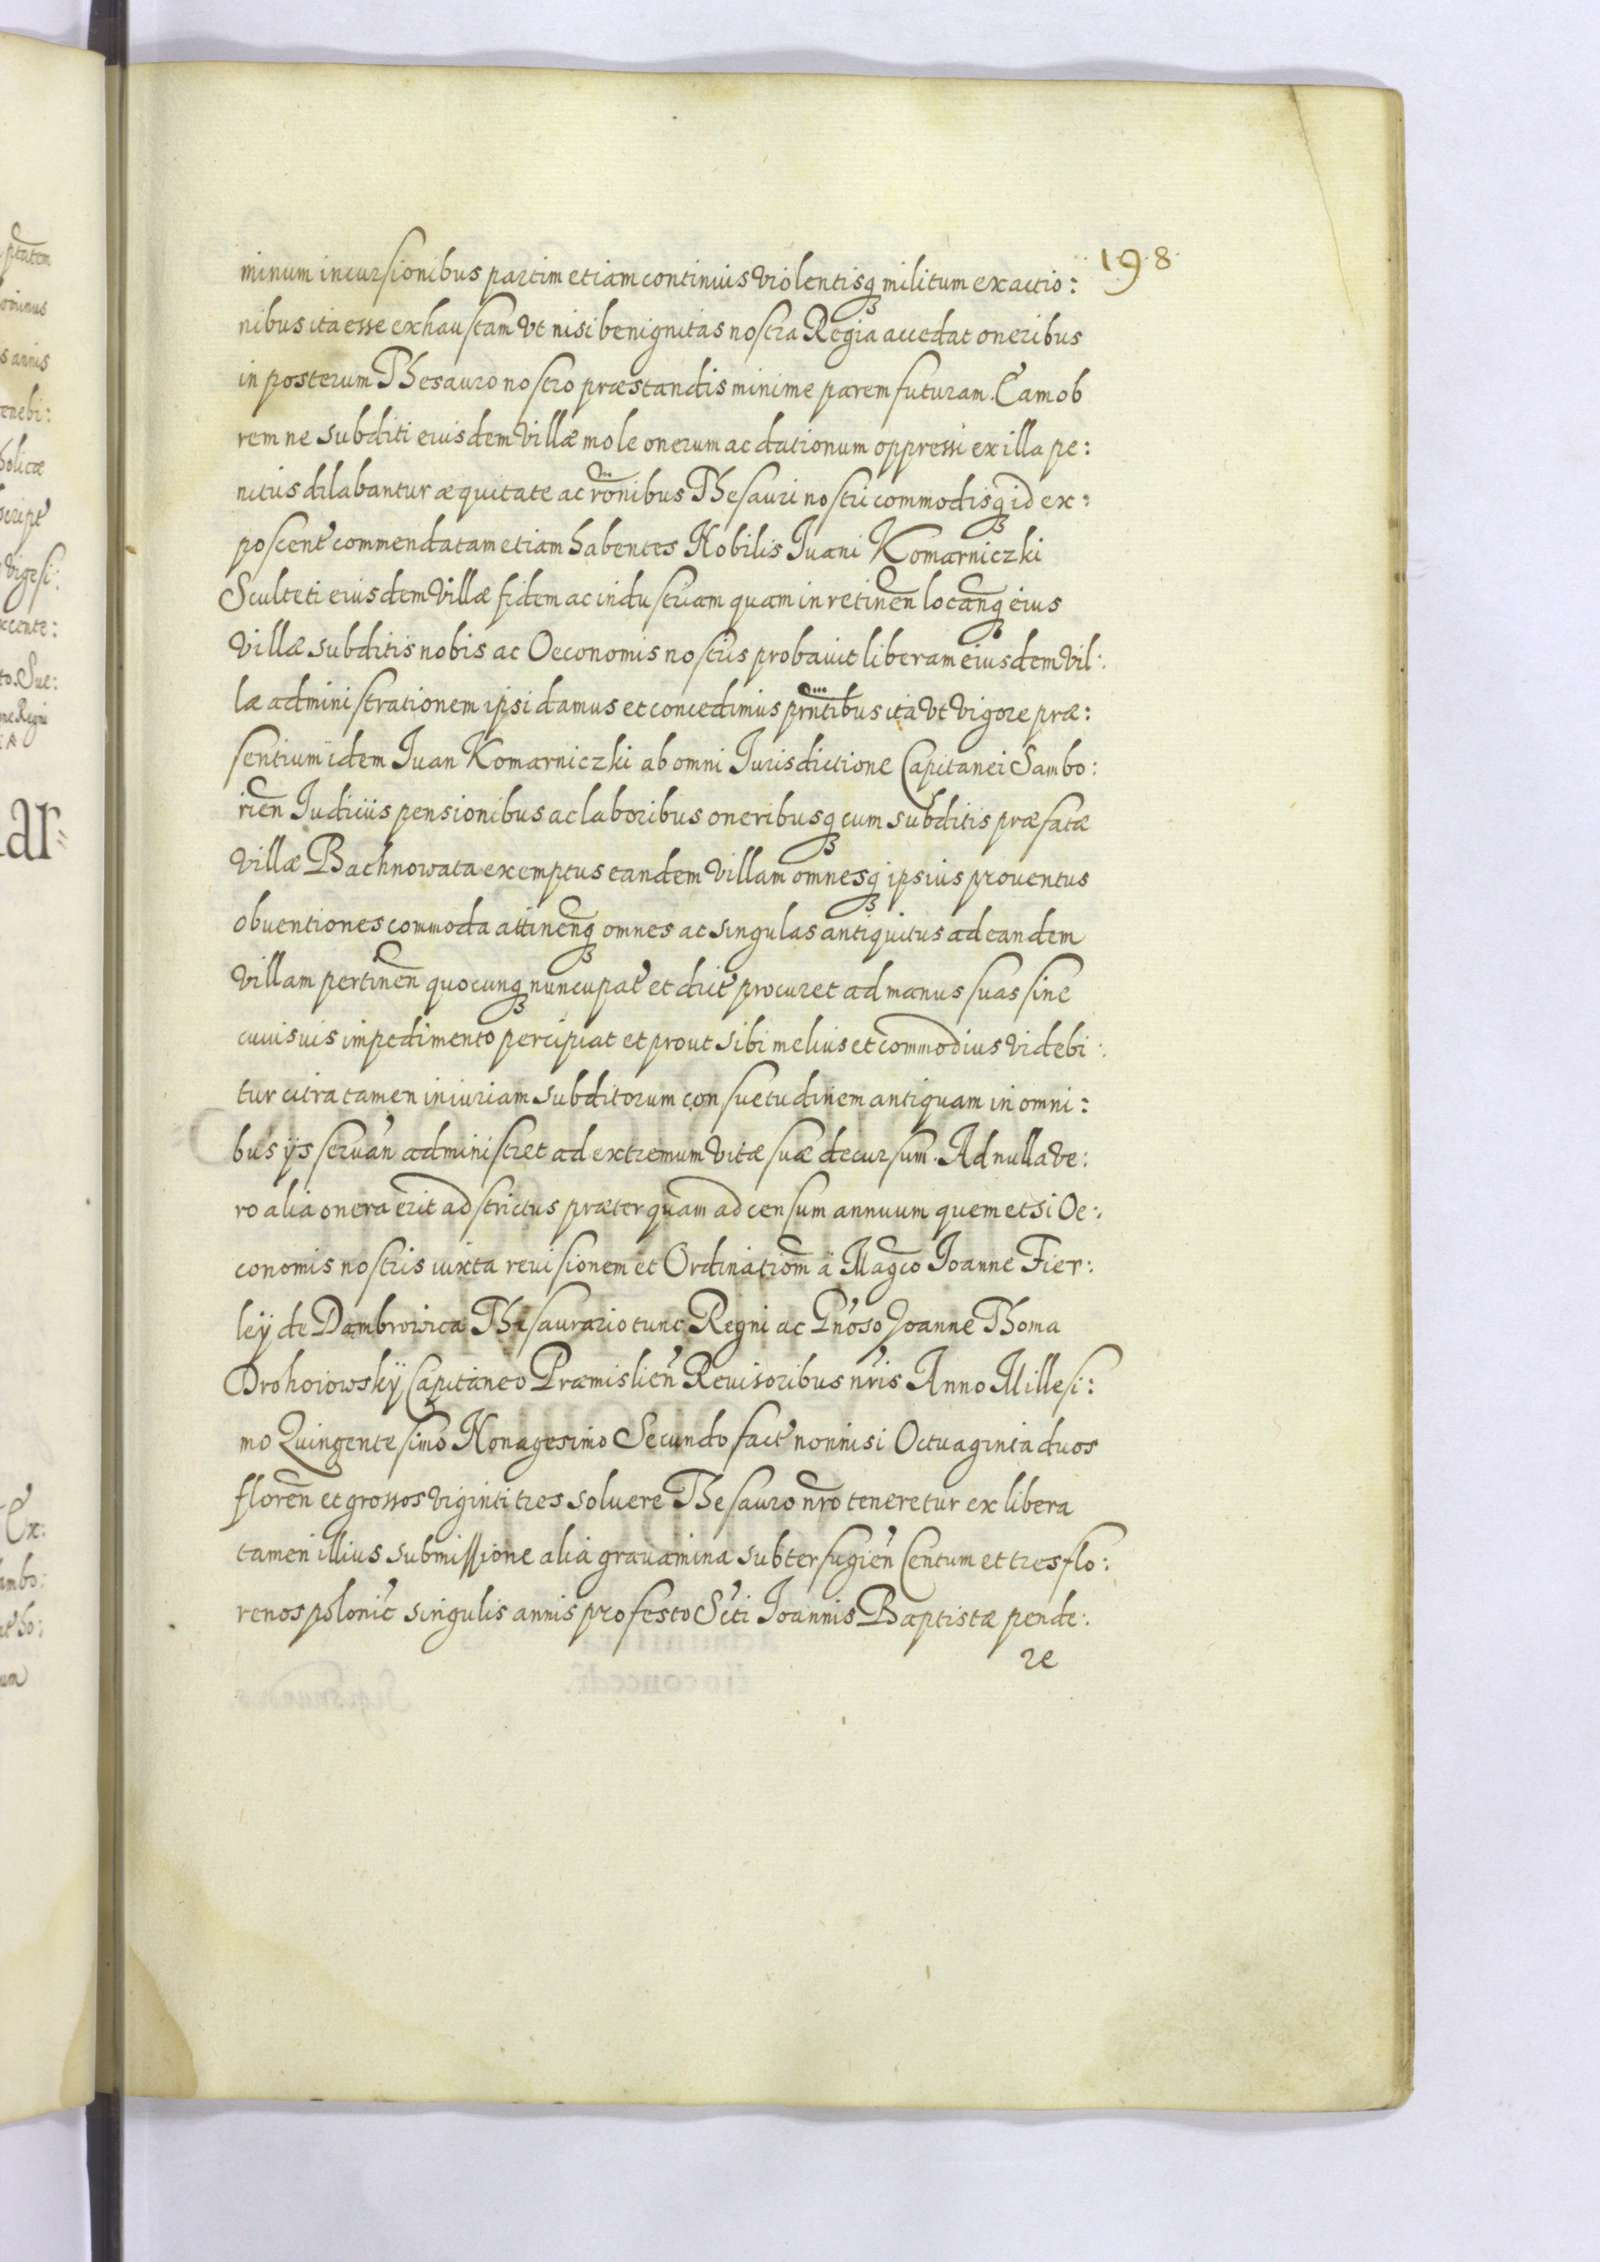 198
minum incursionibus partim etiam continuis violentisq militum exactio:
nibus ita esse exhaustam vt nisi benignitas nostra Regia accedat oneribus
in posterum Thesauro nostro præstandis minime parem futuram. Eam ob
rem ne subditi eiusdem villæ mole onerum ac dationum oppressi ex illa pe:
nitus dilabantur æquitate ac rōnibus Thesauri nostri commodisq id ex:
poscent commendatam etiam habentes Nobilis Iuani Komarniczki
Sculteti eiusdem villæ fidem ac industriam quam in retinen locanq eius
villæ subditis nobis ac Oeconomis nostris probauit liberam eiusdem vil:
læ administrationem ipsi damus et concedimus prntibus ita vt vigore præ:
sentium idem Iuan Komarniczki ab omni Iurisdictione Capitanei Sambo:
rien Iudiciis pensionibus ac laboribus oneribusq cum subditis præfatæ
villæ Bachnowata exemptus eandem villam omnesq ipsius prouentus
obuentiones commoda attinenq omnes ac singulas antiquitus ad eandem
villam pertinen quocunq nuncupat et dict procuret ad manus suas sine
cuiusuis impedimento percipiat et prout sibi melius et commodius videbi:
tur citra tamen iniuriam subditorum consuetudinem antiquam in omni:
bus ijs seruan administret ad extremum vitæ suæ decursum. Ad nulla ve:
ro alia onera erit adstrictus præterquam ad censum annuum quem etsi Oe:
conomis nostris iuxta reuisionem et Ordinatiom a Magco Ioanne Fier:
leÿ de Dambrowica Thesaurario tunc Regni ac Gnoso Joanne Thoma
Drohoiowskÿ Capitaneo Præmislien Reuisoribus nris Anno Millesi:
mo Quingentesimo Nonagesimo Secundo fact nonnisi Octuaginta duos
floren et grossos viginti tres soluere Thesauro nro teneretur ex libera
tamen illius submissione alia grauamina subterfugien Centum et tres flo:
renos polonic singulis annis pro festo Scti Ioannis Baptistæ pende:
re